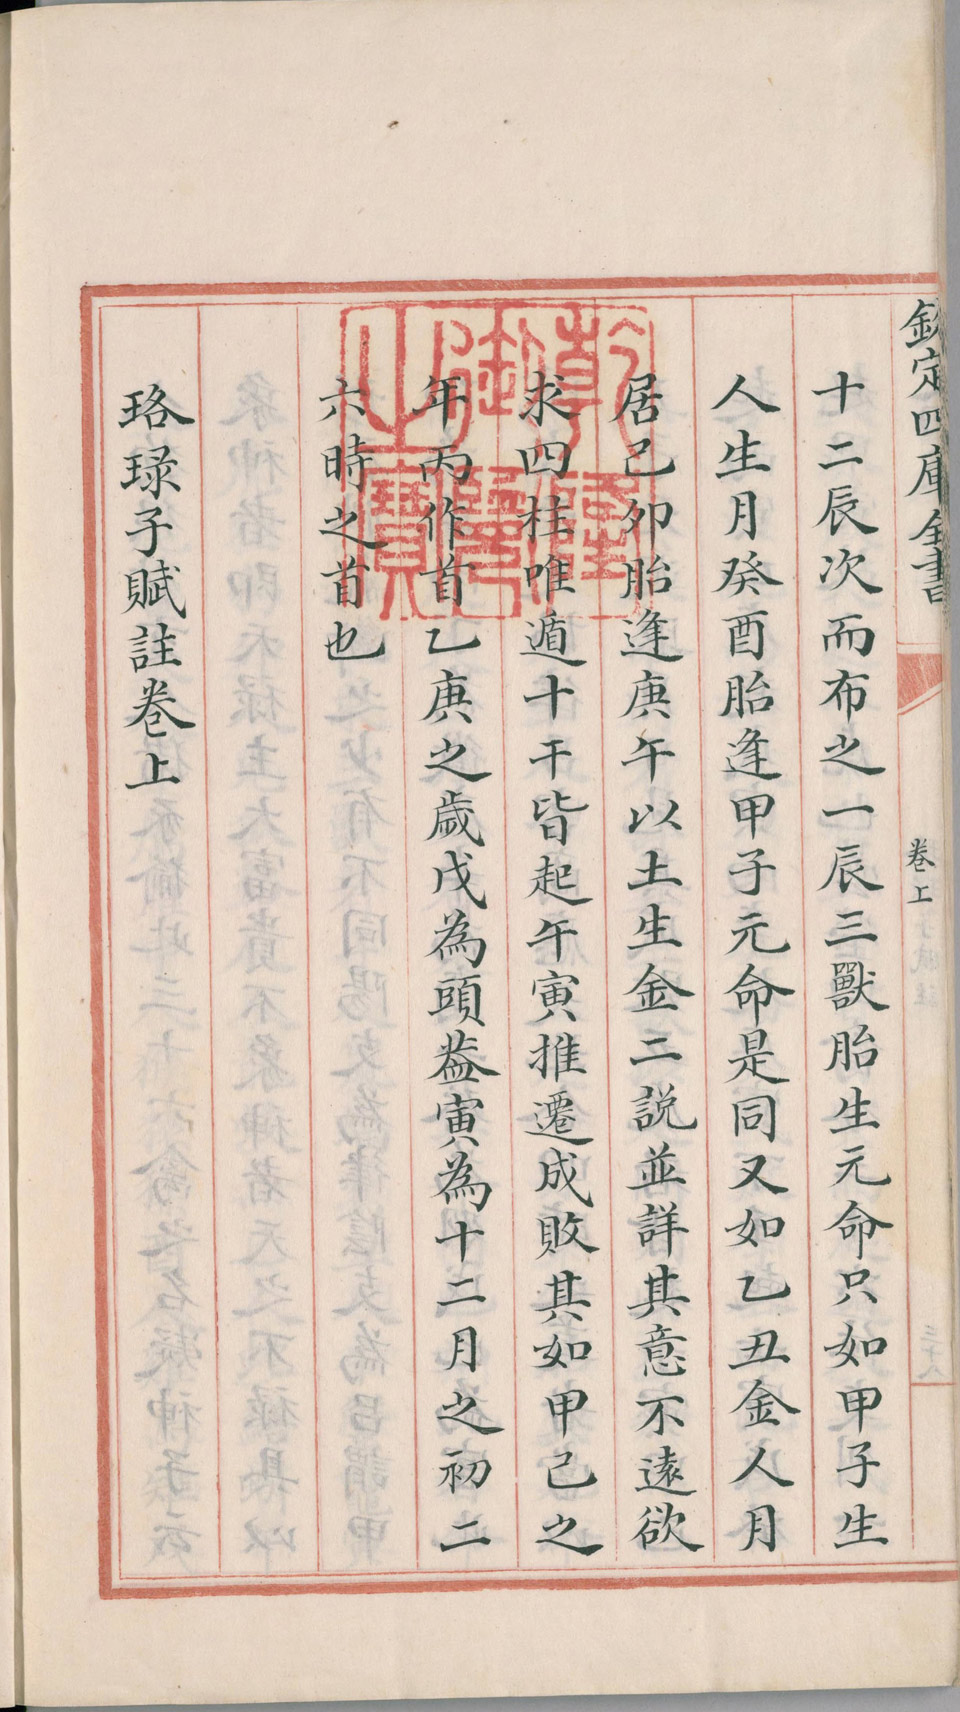 欽定四庫全書
卷上
十二辰次而布之一辰三獸胎生元命只如甲子生
人生月癸酉胎逢甲子元命是同又如乙丑金人月
居己卯胎逢庚午以土生金二説並詳其意不遠欲
求四柱唯遁十干皆起午寅推遷成敗其如甲己之
年丙作首乙庚之歲戊為頭葢寅為十二月之初二
六時之首也
珞琭子賦註卷上
乾隆御覽之寳